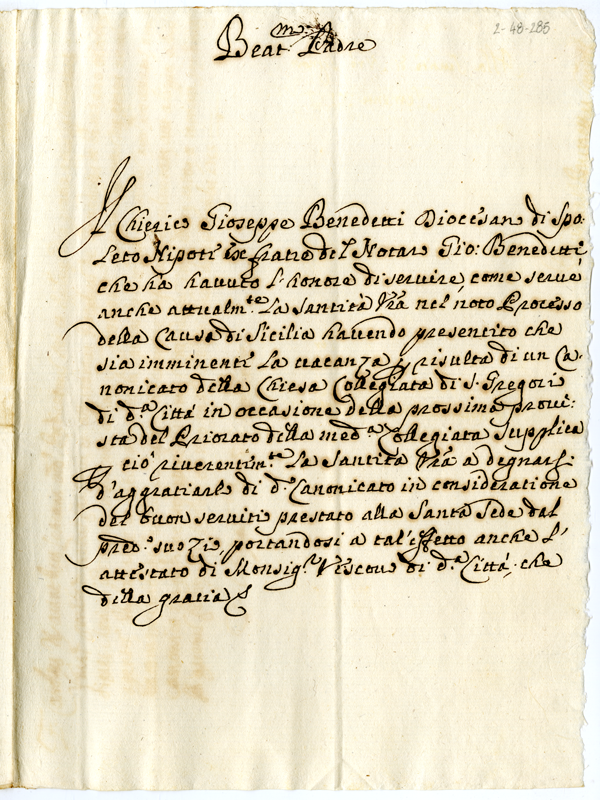 2-48-285
Beat.mo Padre
Il Chierico Gioseppe Benedetti Diocesano di Spo:
leto Nipote ex fratre del Notaro Gio: Benedetti,
che ha havuto l'honore di servire, come serve
anche attualm.te La Santità Vra nel noto Processo
della Causa di Sicilia havendo presentito che
sia imminente La vacanza p risulta di un Ca=
nonicato della Chiesa Collegiata di S. Gregorio
di d.a Città in occasione della prossima provi:
sta del Priorato della med.a Collegiata Supplica
p ciò riverentem.te La Santità Vra a degnarsi
d'aggratiarlo di d.o Canonicato in consideratione
del buon servitio prestato alla Santa Sede dal
pred.o suo Zio, portandosi a tal'effetto anche l'
attestato di Monsig.r Vescovo di d.a Città, che
della gratia